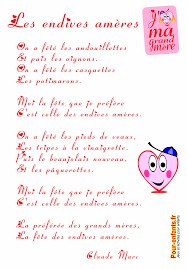 Les endives amères
j'♥
ma
grand
mère
On a fêté les andouillettes
Et puis les oignons.
On a fêté les casquettes
Les potimarons.
Moi la fête que je préfère
C'est celle des endives amères.
On a fêté les pieds de veaux,
Les tripes à la vinaigrette,
Puis le beaujolais nouveau,
Et les pâquerettes.
Moi la fête que je préfère
C'est celle des endives amères.
La préférée des grands mères,
La fête des endives amères.
Claude Marc
Pour-enfants.fr